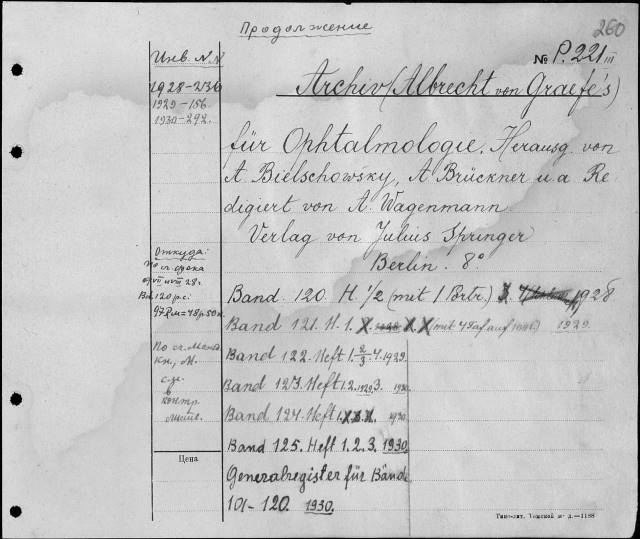 Продолжение
260
№ P.221 III
Инв. N.N
1928-236
1929-156
1930-292.
Archiv (Albrecht von Graefe's)
für Ophtalmologie. Herausg. von
A. Bielschowsky, A. Brückner u.a. Re-
digiert von A. Wagenmann
Verlag von Julius Springer
Berlin. 8°
Откуда:
По сч.
28г.
120 р.с.
Band. 120. H. 1/2 (mit 1 Portr.) X. 1928
Band 121. H. 1. X. X. X (mit 4 Taf auf 1929.
По сч.
кн., М.
см.
в
контр.
листе.
Band 122. Heft 1. 2/3. 4. 1929.
Band 123. Heft 1. 2. 1929. 3. 1930.
Band 124. Heft 1. X. X. X. 1930.
Band 125. Heft 1. 2. 3. 1930.
Цена
Generalregister für Bände
101-120. 1930.
Типо-лит. Томской ж. д.—1188